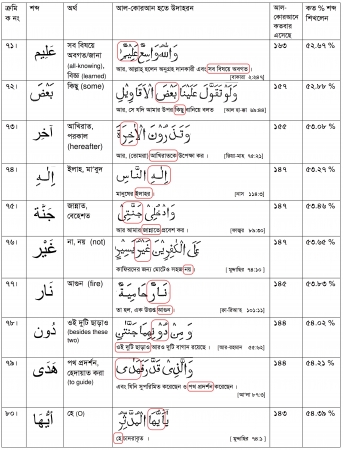 ক্রমিক নং শব্দ অর্থ আল-কোরআন হতে উদাহরন আল-কোরআনে কতবার এসেছে কত % শব্দ শিখলেন
৭১। عَلِيْم সব বিষয়ে অবগত/জানা (all-knowing), বিজ্ঞ (learned) وَاللّٰهُ وَاسِعٌ عَلِيْمٌ ১৬৩ ৫২.৬৭ %
আর, আল্লাহ হলেন অনুগ্রহ দানকারী এবং সব বিষয়ে অবগত।
[বাকারা ২:২৪৭]
৭২। بَعْض কিছু (some) وَلَوْ تَقَوَّلَ عَلَيْنَا بَعْضَ الْاَقَاوِيْلِ ১৫৭ ৫২.৮৮ %
আর, সে যদি আমার উপর কিছু বানিয়ে বলত [আল হা-ক্কা ৬৯:৪৪]
৭৩। آخِر আখিরাত, পরকাল (hereafter) وَتَذَرُوْنَ الْاٰخِرَةَ ১৫৫ ৫৩.০৮ %
আর, (তোমরা) আখিরাতকে উপেক্ষা কর। [কিয়া-মাহ ৭৫:২১]
৭৪। اِلٰه ইলাহ, মা'বুদ اِلٰهِ النَّاسِ ১৪৭ ৫৩.২৭ %
মানুষের ইলাহর [নাস ১১৪:৩]
৭৫। جَنَّة জান্নাত, বেহেশত وَادْخُلِيْ جَنَّتِيْ ১৪৭ ৫৩.৪৬ %
আর আমার জান্নাতে প্রবেশ কর। [ফাজ্বর ৮৯:৩০]
৭৬। غَيْر না, নয় (not) عَلَى الْكٰفِرِيْنَ غَيْرُ يَسِيْرٍ ১৪৭ ৫৩.৬৫ %
কাফিরদের জন্য মোটেও সহজ নয়। [মুদ্দাছির ৭৪:১০]
৭৭। نَار আগুন (fire) نَارٌ حَامِيَةٌ ১৪৫ ৫৩.৮৩ %
তা হল, এক উত্তপ্ত আগুন। [ক্বা-রিআহ ১০১:১১]
৭৮। دُون ওই দুটি ছাড়াও (besides these two) وَمِنْ دُوْنِهِمَا جَنَّتٰنِ ১৪৪ ৫৪.০২ %
ওই দুটি ছাড়াও আরও দুটি বাগান রয়েছে। [আর-রহমান ৫৫:৬২]
৭৯। هَدٰى পথ প্রদর্শন, হেদায়াত করা (to guide) وَالَّذِيْ قَدَّرَ فَهَدٰى ১৪৪ ৫৪.২১ %
এবং যিনি সুপরিমিত করেছেন ও পথ প্রদর্শন করেছেন।
[আ'লা ৮৭:৩]
৮০। اَيُّهَا হে (O) يٰٓاَيُّهَا الْمُدَّثِّرُ ১৪৩ ৫৪.৩৯ %
হে চাদরাবৃত। [মুদ্দাছির ৭৪:১]